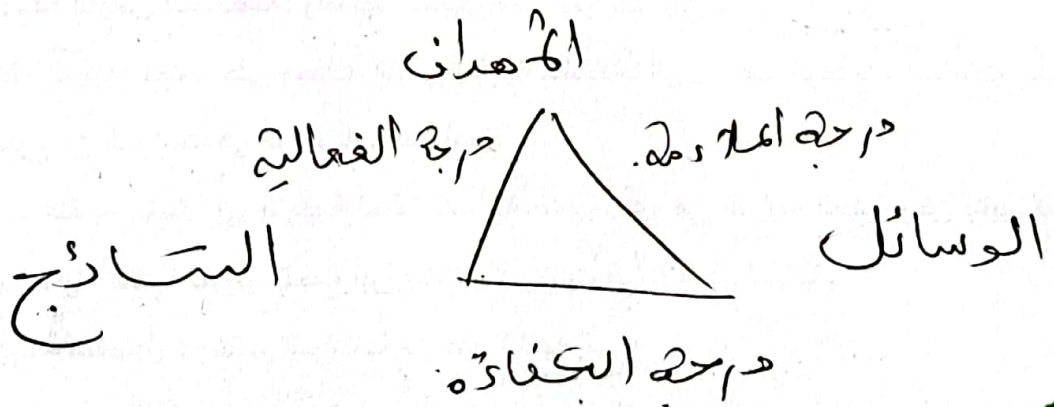 الأهداف
درجة الملاءمة
درجة الفعالية
الوسائل
النتائج
درجة الكفاءة